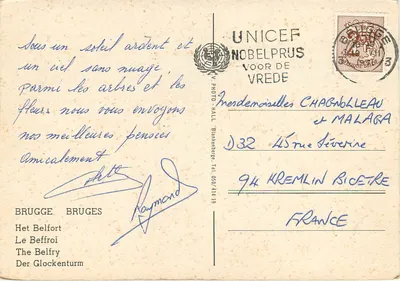 Sous un soleil ardent et
un ciel sans nuage,
parmi les arbres et les
fleurs nous vous envoyons
nos meilleures pensées
amicalement
Raymond
BRUGGE. BRUGES
Het Belfort
Le Beffroi
The Belfry
Der Glockenturm
PHOTO HALL
UNICEF
NOBELPRIJS
VOOR DE
VREDE
Mesdemoiselles CHAGNOLLEAU
et MALAGA
D32 45 rue Séverine
94 KREMLIN BICETRE
FRANCE